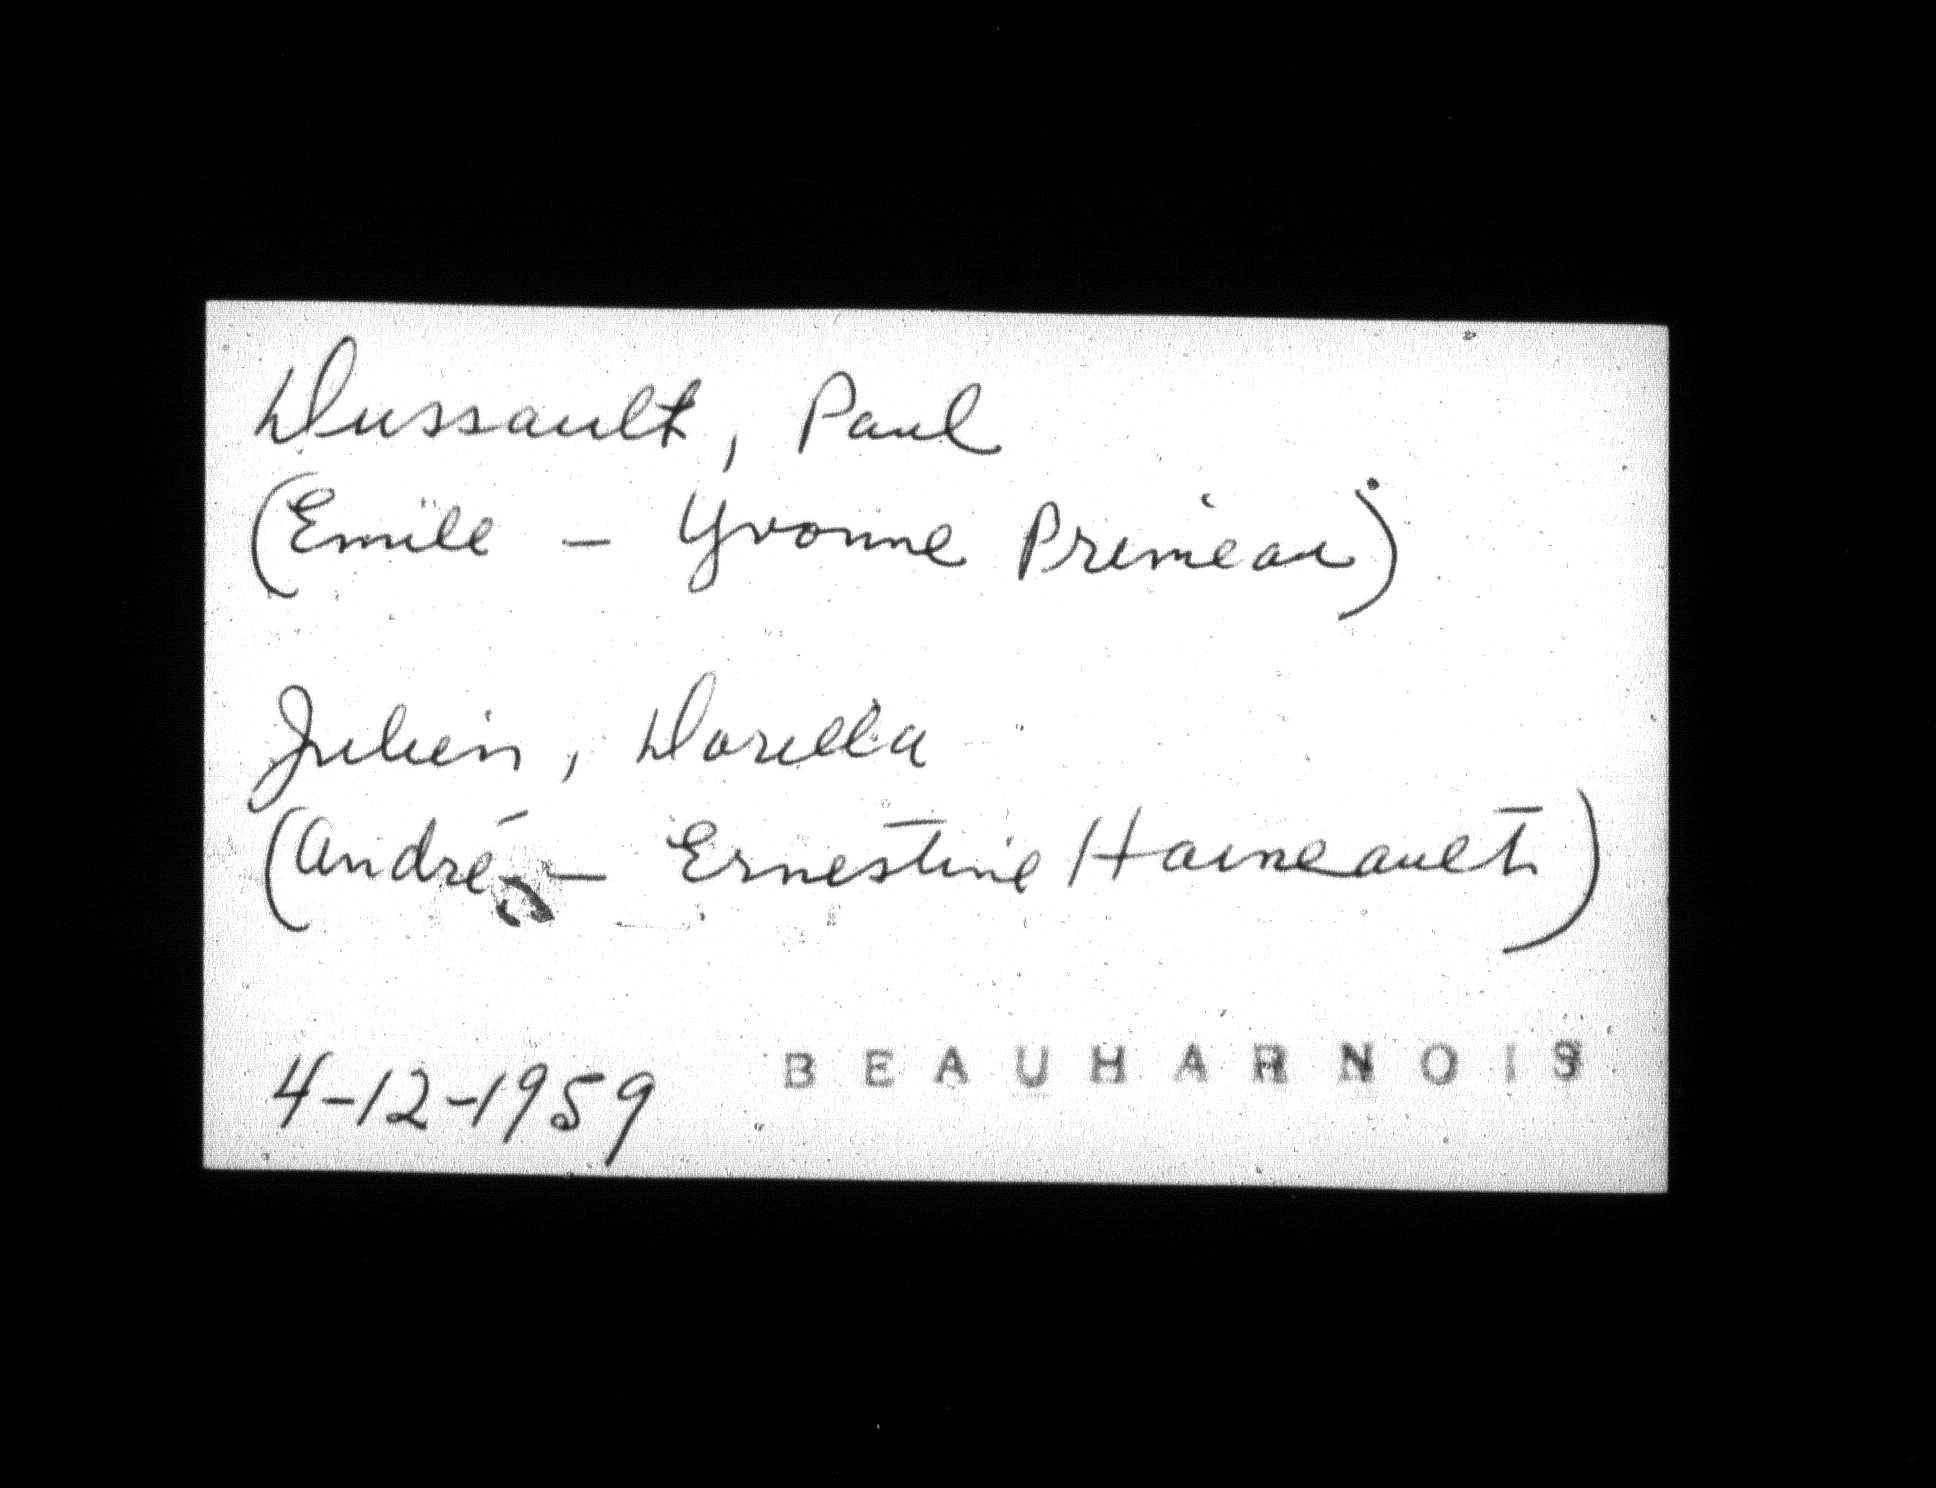 Dussault, Paul
(Emile - Yvonne Primeau)
Julien, Dorilla
(André - Ernestine Haineault)
4-12-1959 BEAUHARNOIS